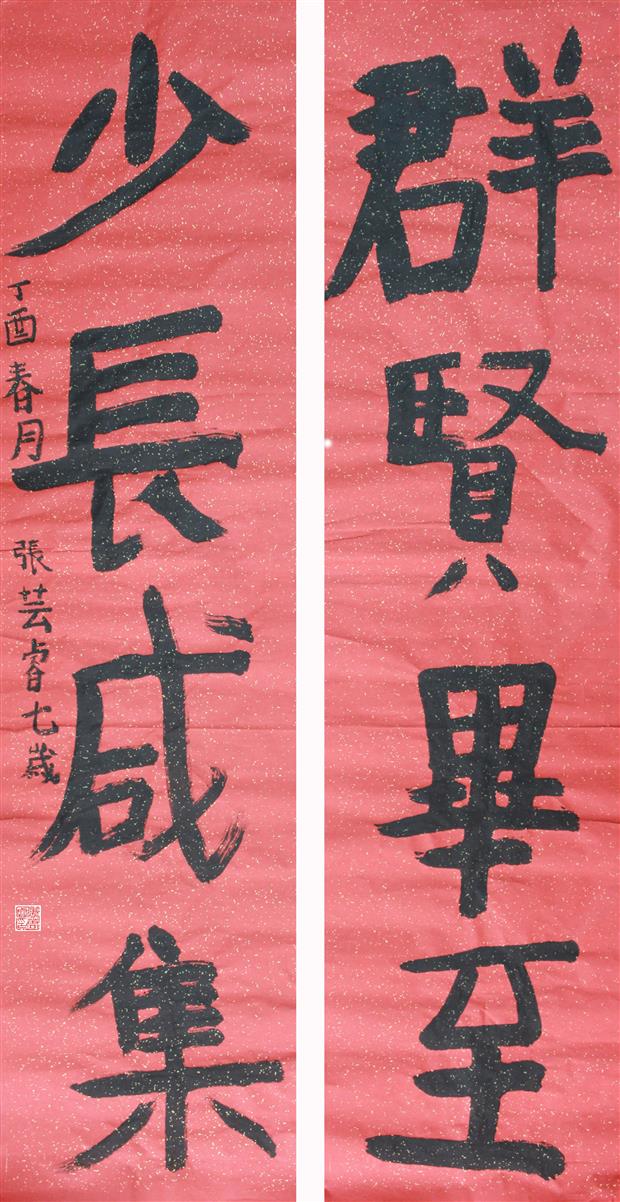 群賢畢至
少長咸集
丁酉春月 張芸睿七歲